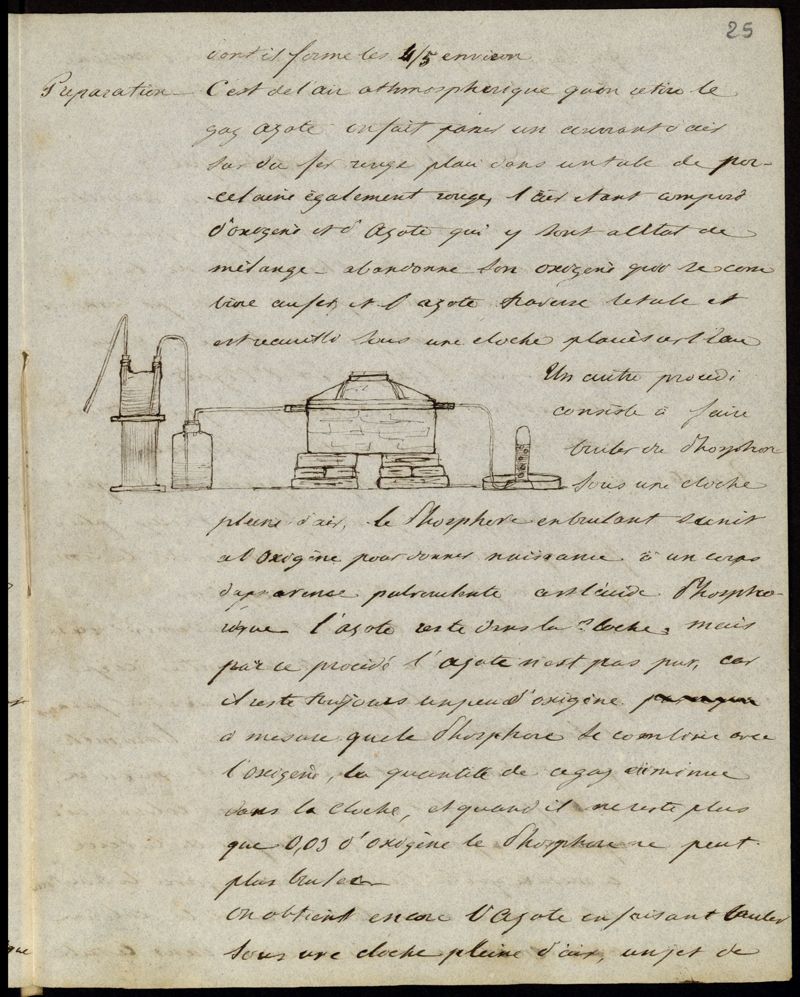 25
dont il forme les 4/5 environ
Préparation — C'est de l'air athmosphérique qu'on retire le
gaz azote on fait passer un courant d'air
sur du fer rouge placé dans un tube de por-
-celaine également rouge, l'air étant composé
d'oxigène et d'Azote qui y sont à l'état de
mélange - abandonne son oxigène qui se com
bine au fer, et l'azote traverse le tube et
est recueilli sous une cloche placée sur l'eau
Un autre procédé
consiste à faire
bruler du Phosphore
sous une cloche
pleine d'air, le Phosphore en brulant s'unit
à l'oxigène pour donner naissance à un corps
d'apparence pulvérulente c'est l'acide Phospho-
rique l'azote reste dans la cloche, mais
par ce procédé l'azote n'est pas pur, car
il reste toujours un peu d'oxigène
à mesure que le Phosphore se combine avec
l'oxigène, la quantité de ce gaz diminue
dans la cloche, et quand il ne reste plus
que 0,03 d'oxigène le Phosphore ne peut
plus bruler
on obtient encore l'Azote en faisant bruler
sous une cloche pleine d'air, un jet de